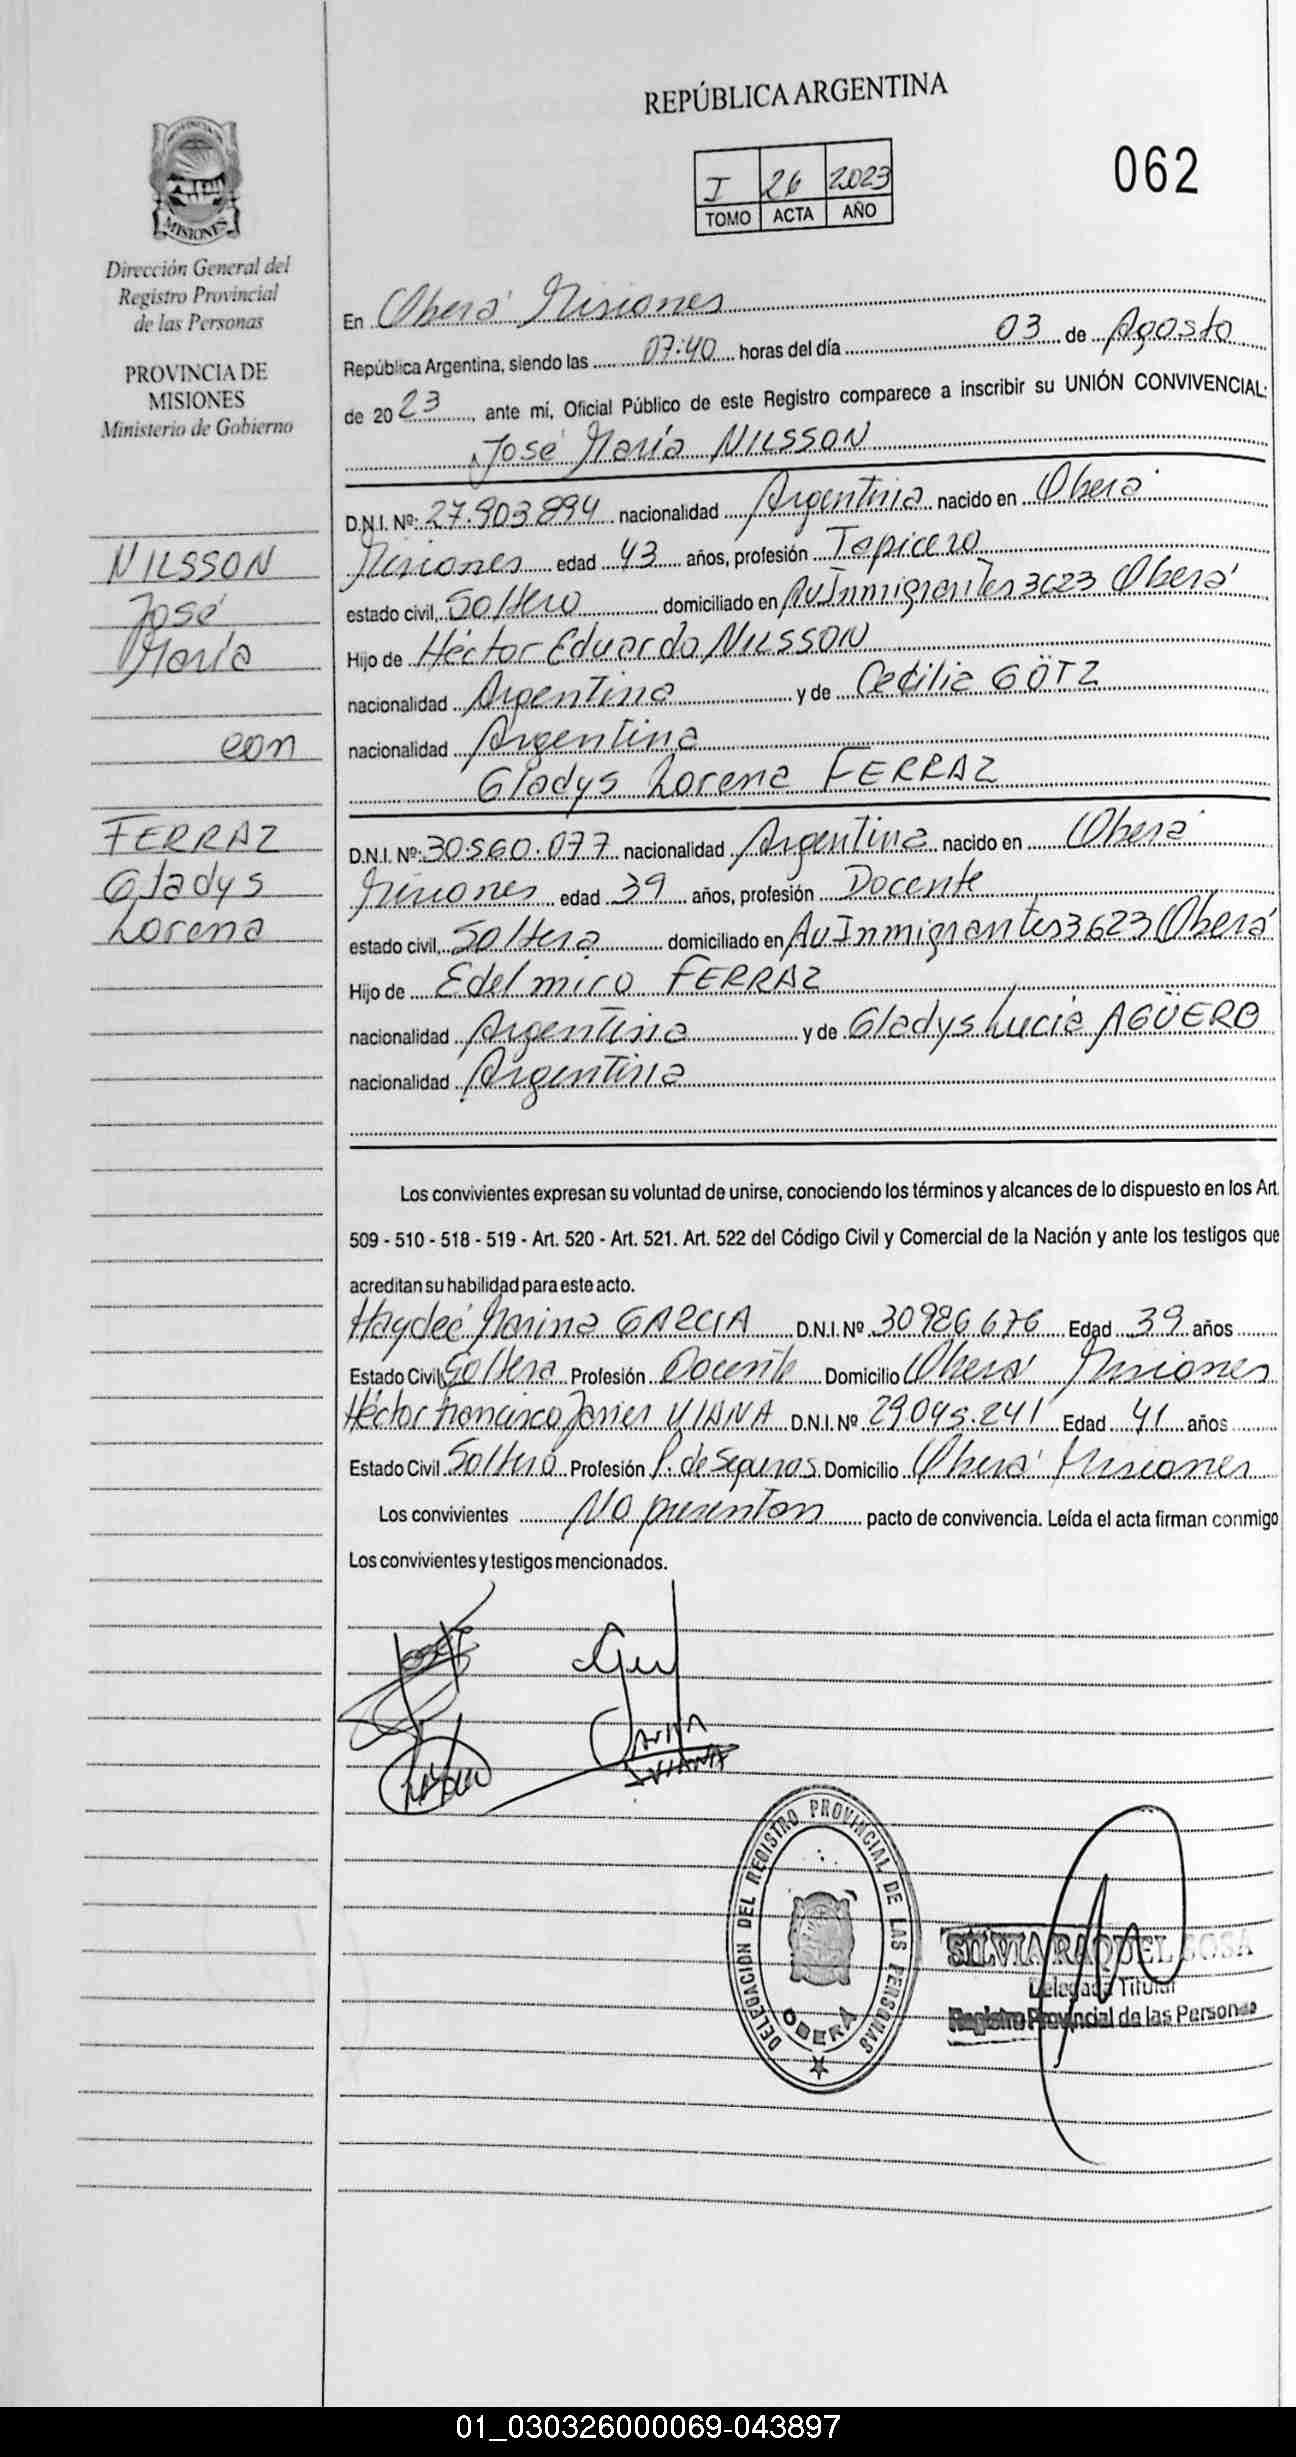 REPÚBLICA ARGENTINA
062
I 26 2023
TOMO ACTA AÑO
PROVINCIA DE
MISIONES
Dirección General del
Registro Provincial
de las Personas
PROVINCIA DE
MISIONES
Ministerio de Gobierno
NILSSON
José
María
con
FERRAZ
Gladys
Lorena
En Oberá Misiones
República Argentina, siendo las 07:40 horas del día 03 de Agosto
de 2023, ante mí, Oficial Público de este Registro comparece a inscribir su UNIÓN CONVIVENCIAL:
José María NILSSON
D.N.I. Nº: 27.903.894 nacionalidad Argentina nacido en Oberá
Misiones edad 43 años, profesión Tapicero
estado civil, Soltero domiciliado en Av Inmigrantes 3623 Oberá
Hijo de Héctor Eduardo NILSSON
nacionalidad Argentina y de Cecilia GÖTZ
nacionalidad Argentina
Gladys Lorena FERRAZ
D.N.I. Nº: 30.560.077 nacionalidad Argentina nacido en Oberá
Misiones edad 39 años, profesión Docente
estado civil, Soltera domiciliado en Av Inmigrantes 3623 Oberá
Hijo de Edelmiro FERRAZ
nacionalidad Argentina y de Gladys Lucia AGÜERO
nacionalidad Argentina
Los convivientes expresan su voluntad de unirse, conociendo los términos y alcances de lo dispuesto en los Art.
509 - 510 - 518 - 519 - Art. 520 - Art. 521. Art. 522 del Código Civil y Comercial de la Nación y ante los testigos que
acreditan su habilidad para este acto.
Haydeé Marina GARCIA D.N.I. Nº 30986676 Edad 39 años
Estado Civil Soltera Profesión Docente Domicilio Oberá Misiones
Héctor Francisco Javier VIANA D.N.I. Nº 29.045.241 Edad 41 años
Estado Civil Soltero Profesión P. de Seguros Domicilio Oberá Misiones
Los convivientes No presentan pacto de convivencia. Leída el acta firman conmigo
Los convivientes y testigos mencionados.
VIANA
DELEGACIÓN DEL REGISTRO PROVINCIAL DE LAS PERSONAS
OBERÁ
SILVIA RAQUEL SOSA
Delegada Titular
Registro Provincial de las Personas
01_030326000069-043897